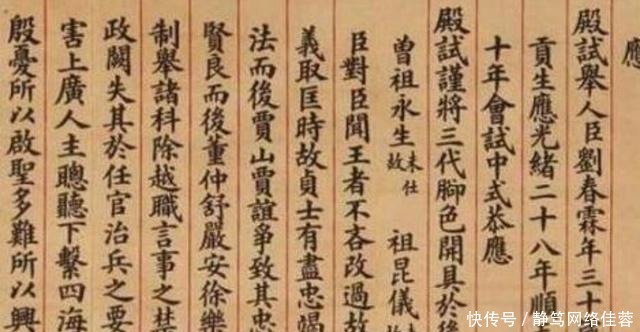 應
殿試舉人臣劉春霖年三十
貢生應光緒二十八年順
十年會試中式恭應
殿試謹將三代腳色開具於後
曾祖永生 未仕故 祖昆儀
臣對臣聞王者不吝改過故
義取匡時故貞士有盡忠竭
法而後賈山賈誼爭致其忠
賢良而後董仲舒嚴安徐樂
制舉諸科除越職言事之
政闕失其於任官治兵之要
害上廣人主聰聽下繫四海
殷憂所以啟聖多難所以興
快传号/静笃网络佳蓉